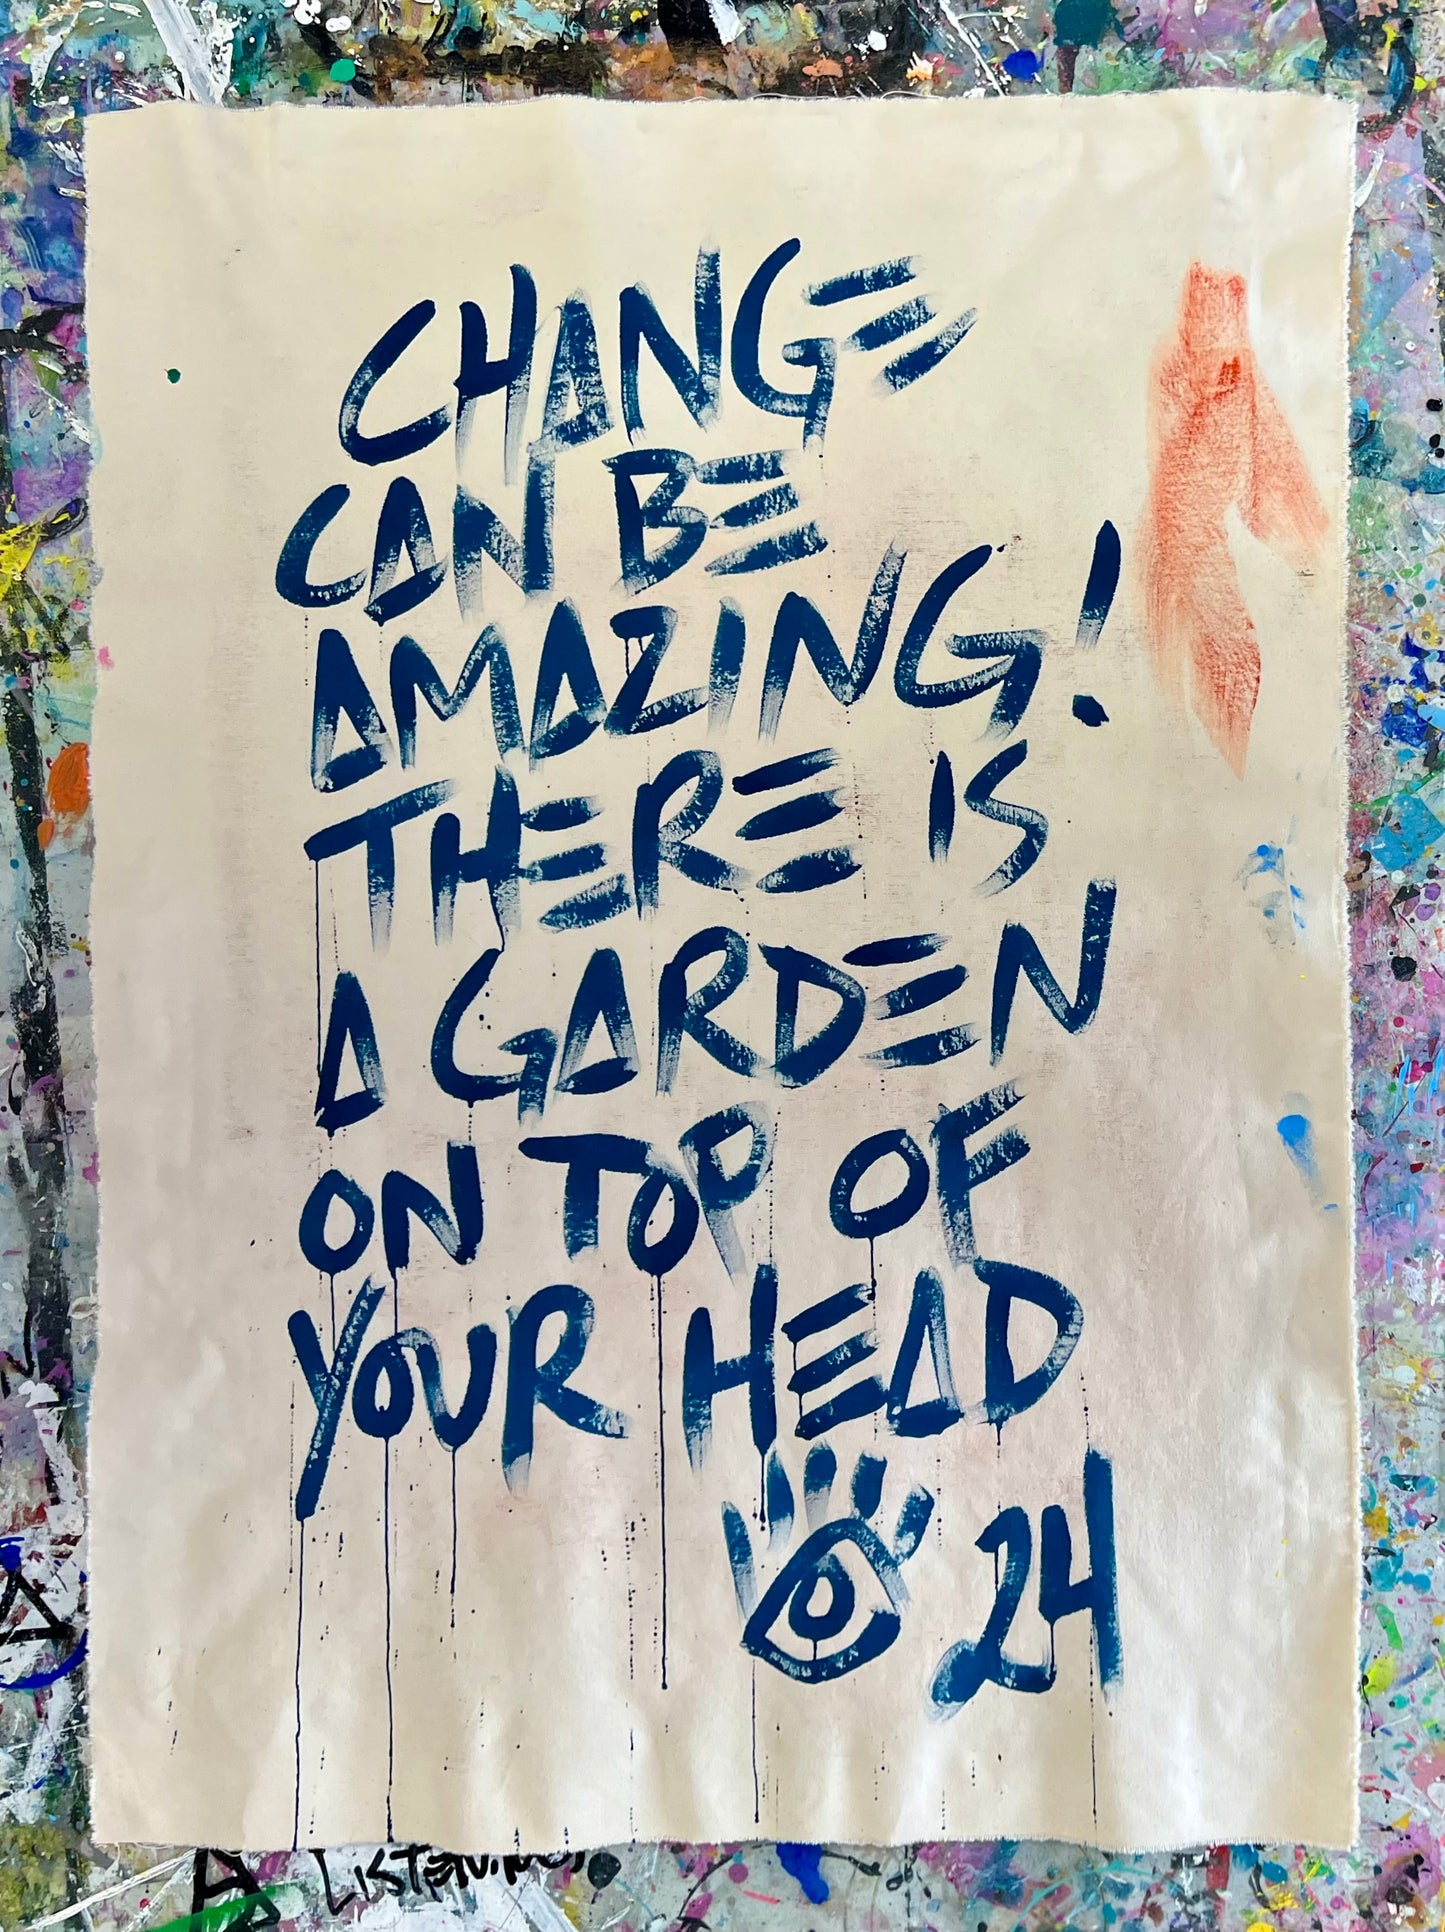 CHANGE
CAN BE
AMAZING!
THERE IS
A GARDEN
ON TOP OF
YOUR HEAD
24
LISTENING